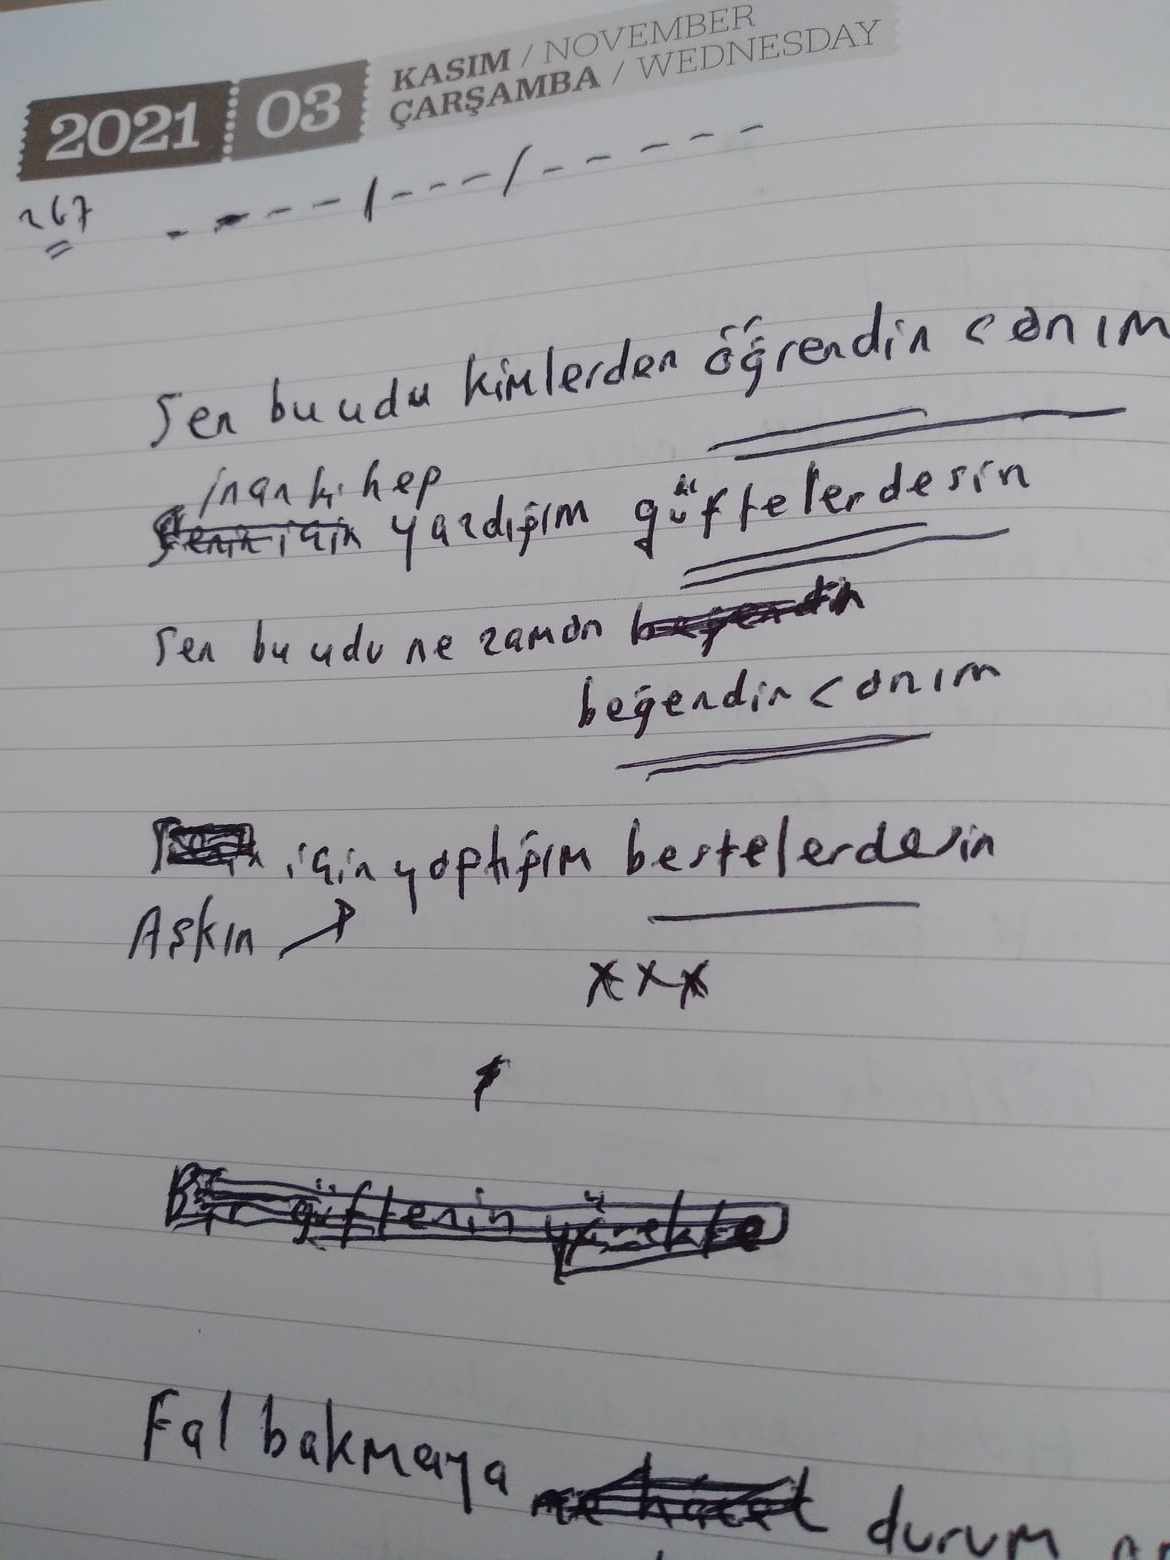 2021 03 KASIM / NOVEMBER
ÇARŞAMBA / WEDNESDAY
267
Sen bu udu kimlerden öğrendin canım
inan ki hep
Senin için yazdığım güftelerdesin
Sen bu udu ne zaman beğendin
beğendin canım
için yaptığım bestelerdesin
Aşkın
xxx
Bir güftenin yürekte
Fal bakmaya durum